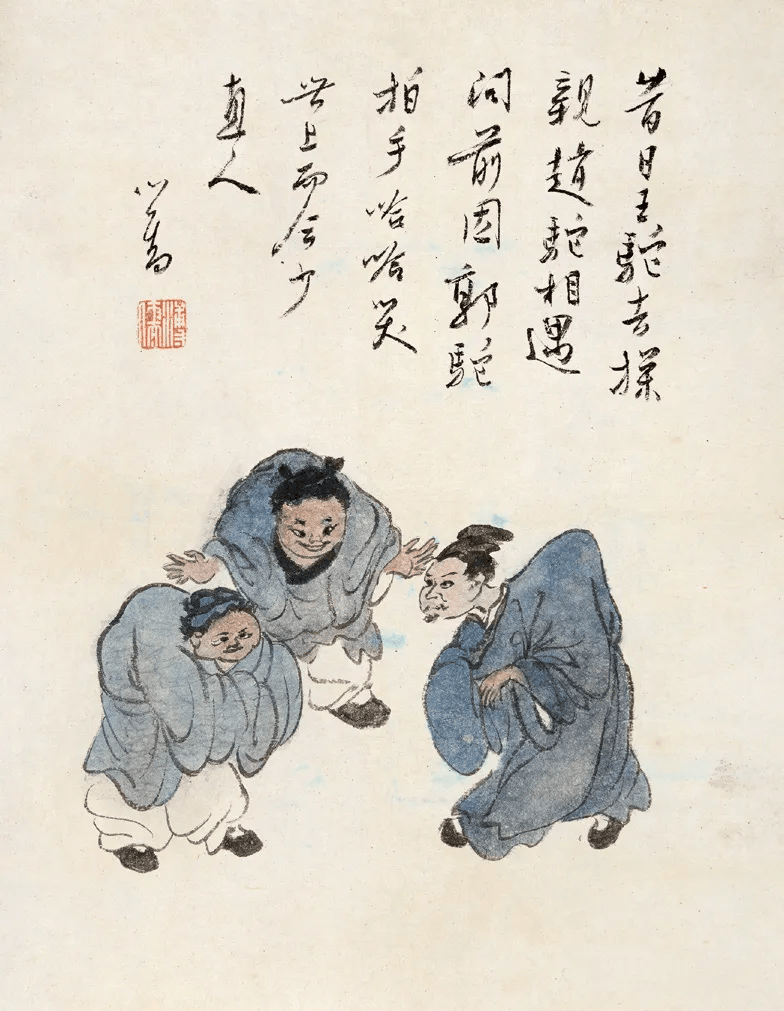 昔日王駝去探
親趙駝相遇
問前因郭駝
拍手哈哈笑
世上而今少
直人
心畬
溥儒